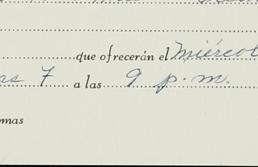 que ofrecerán el Miércol
as 7 a las 9 p.m.
mas